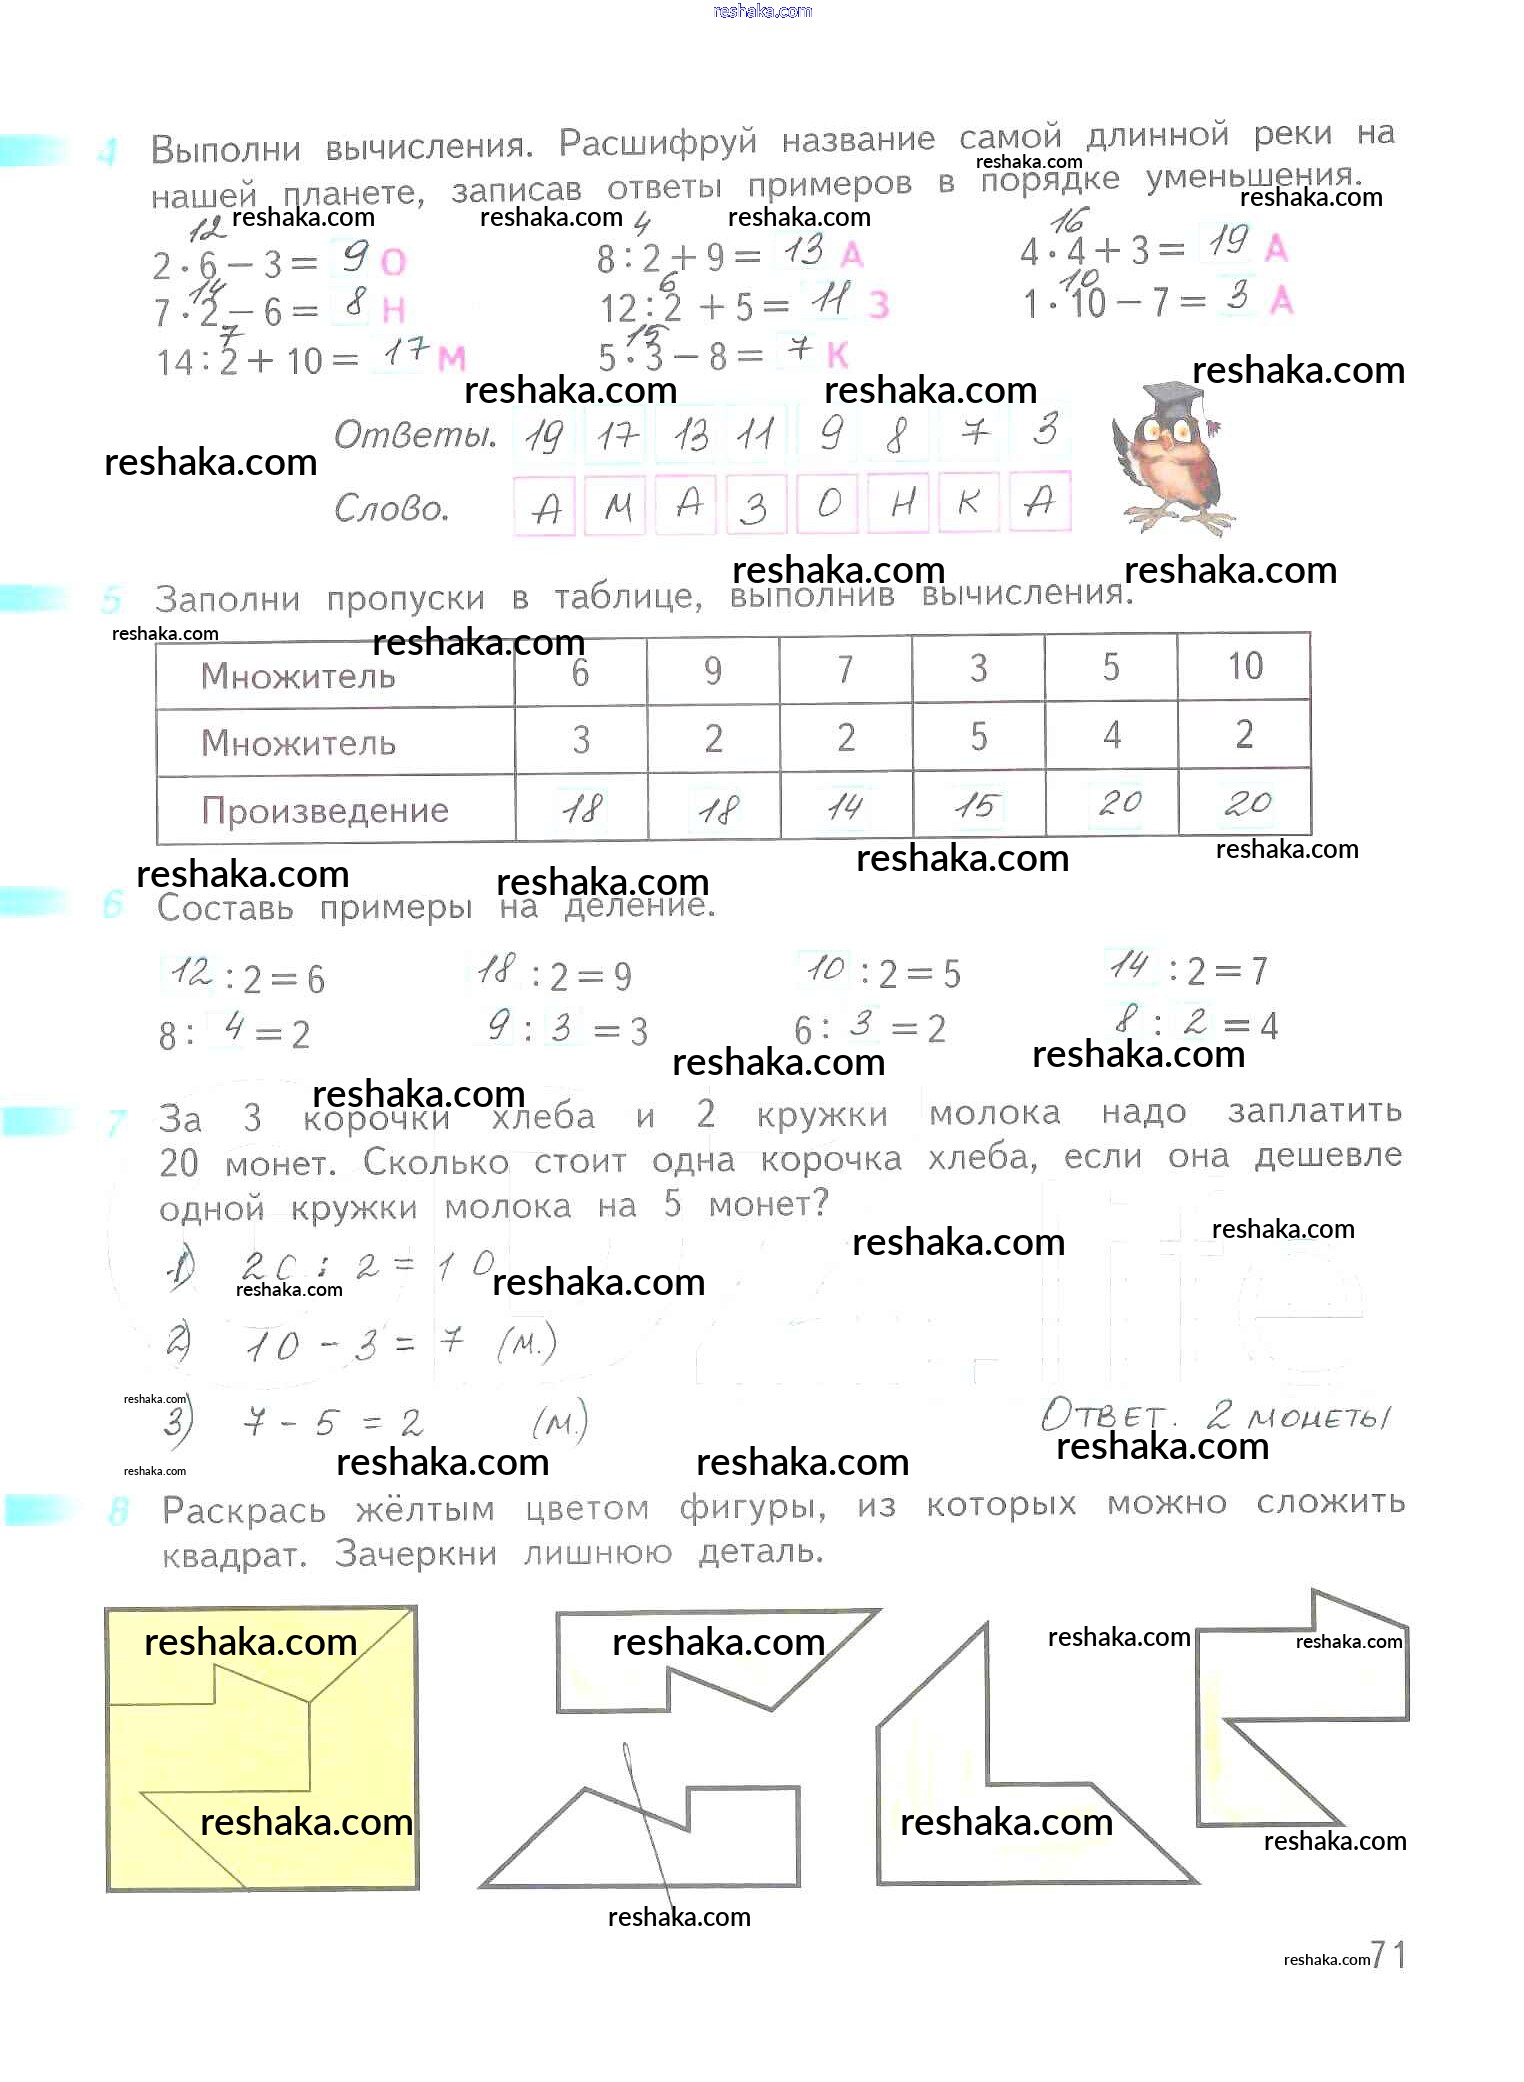 reshaka.com
4 Выполни вычисления. Расшифруй название самой длинной реки на
reshaka.com
нашей планете, записав ответы примеров в порядке уменьшения.
reshaka.com reshaka.com reshaka.com reshaka.com
12 4 16
2·6−3= 9 О 8:2+9= 13 А 4·4+3= 19 А
14 6 10
7·2−6= 8 Н 12:2+5= 11 З 1·10−7= 3 А
7 15
14:2+10= 17 М 5·3−8= 7 К
reshaka.com reshaka.com reshaka.com
Ответы. 19 17 13 11 9 8 7 3
reshaka.com
Слово. А М А З О Н К А
reshaka.com reshaka.com
5 Заполни пропуски в таблице, выполнив вычисления.
reshaka.com reshaka.com
Множитель 6 9 7 3 5 10
Множитель 3 2 2 5 4 2
Произведение 18 18 14 15 20 20
reshaka.com reshaka.com reshaka.com reshaka.com
6 Составь примеры на деление.
12 :2=6 18 :2=9 10 :2=5 14 :2=7
8: 4 =2 9 : 3 =3 6: 3 =2 8 : 2 =4
reshaka.com reshaka.com reshaka.com
7 За 3 корочки хлеба и 2 кружки молока надо заплатить
20 монет. Сколько стоит одна корочка хлеба, если она дешевле
одной кружки молока на 5 монет?
reshaka.com reshaka.com
1) 20 : 2 = 10
reshaka.com reshaka.com
2) 10 - 3 = 7 (м.)
reshaka.com
3) 7 - 5 = 2 (м.) Ответ. 2 монеты
reshaka.com reshaka.com reshaka.com reshaka.com
8 Раскрась жёлтым цветом фигуры, из которых можно сложить
квадрат. Зачеркни лишнюю деталь.
reshaka.com reshaka.com reshaka.com reshaka.com
reshaka.com reshaka.com reshaka.com
reshaka.com
reshaka.com 71